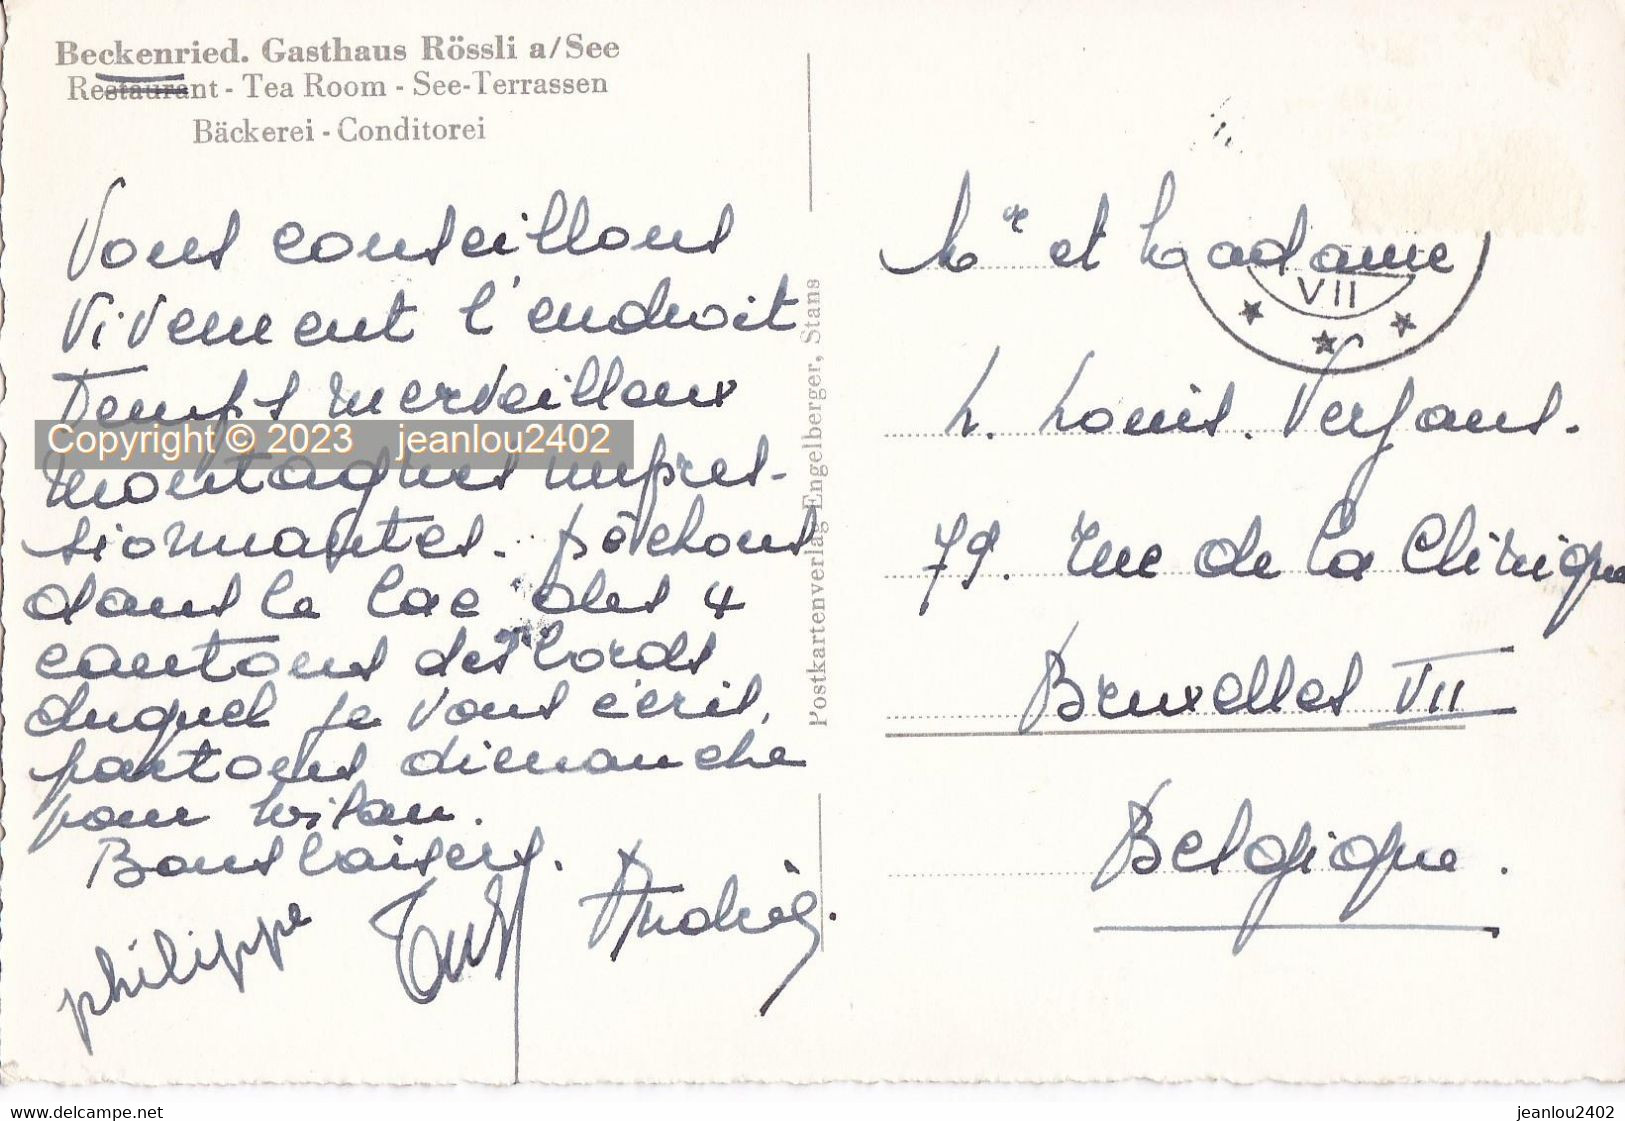 Beckenried. Gasthaus Rössli a/See
Restaurant - Tea Room - See-Terrassen
Bäckerei - Conditorei
Vous conseillons
vivement l'endroit
Temps merveilleux
montagnes impres-
sionnantes. pêchons
dans le lac des 4
cantons des bords
duquel je vous écris,
partons dimanche
pour Milan.
Bons baisers.
philippe
Andrée.
Postkartenverlag Engelberger, Stans
Mr et Madame
VII
L. Louis. Verjans.
79. rue de la Clinique
Bruxelles VII
Belgique.
Copyright © 2023 jeanlou2402
www.delcampe.net
jeanlou2402